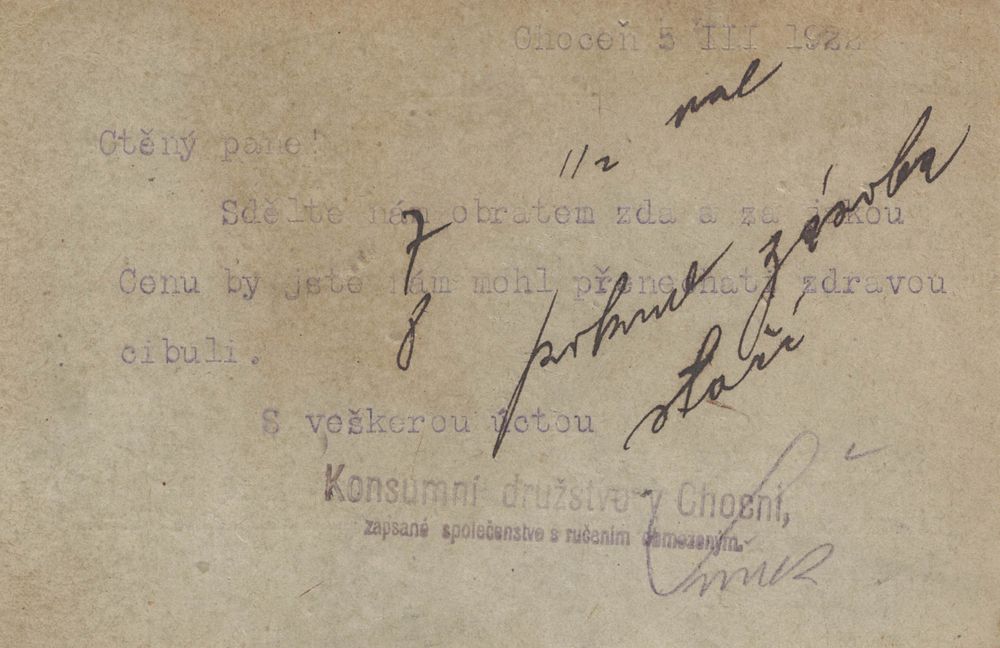 Choceň 5 III 1922
Ctěný pane!
Sdělte nám obratem zda a za jakou
Cenu by jste nám mohl přenechati zdravou
cibuli.
S veškerou úctou
Konsumní družstvo v Chocni,
zapsané společenstvo s ručením obmezeným.
7
8
zásoba
staří